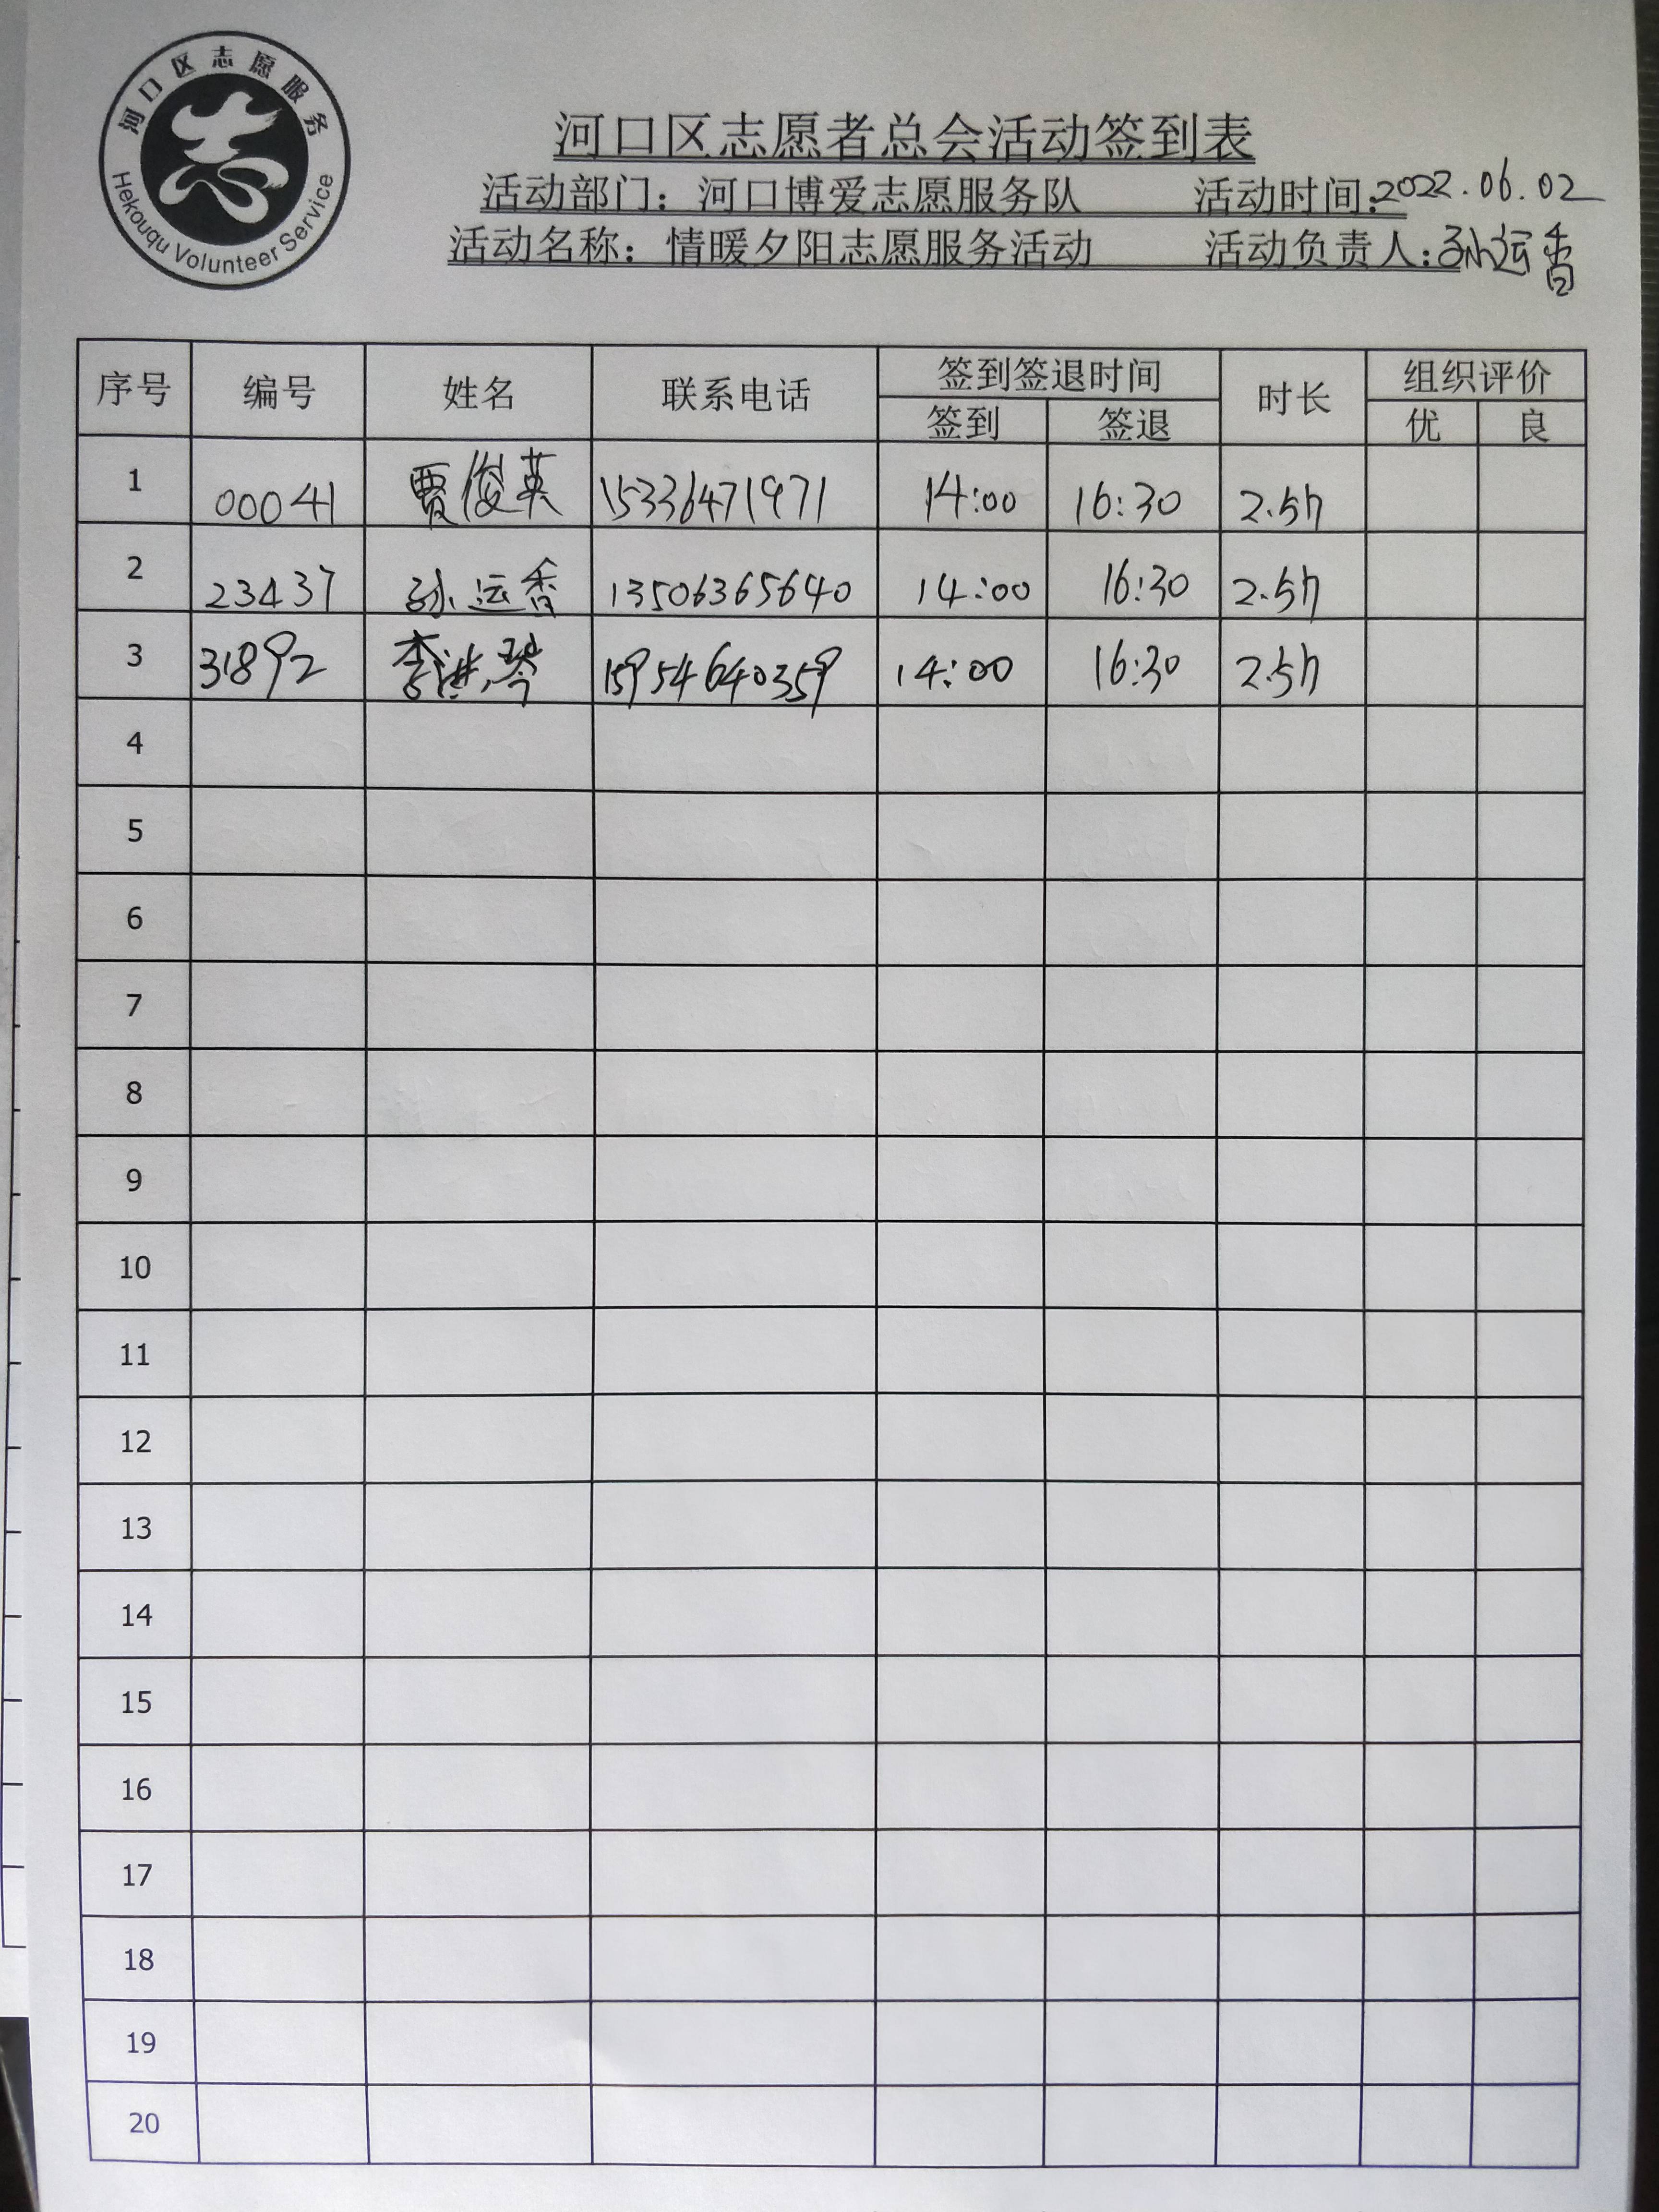 河口区志愿服务
Hekouqu Volunteer Service
河口区志愿者总会活动签到表
活动部门：河口博爱志愿服务队 活动时间：2022.06.02
活动名称：情暖夕阳志愿服务活动 活动负责人：孙运香
序号 编号 姓名 联系电话 签到签退时间 时长 组织评价
签到 签退 优 良
1 00041 贾俊英 15336471971 14:00 16:30 2.5h
2 23437 孙运香 13506365640 14:00 16:30 2.5h
3 31892 李洪琴 15954640359 14:00 16:30 2.5h
4
5
6
7
8
9
10
11
12
13
14
15
16
17
18
19
20